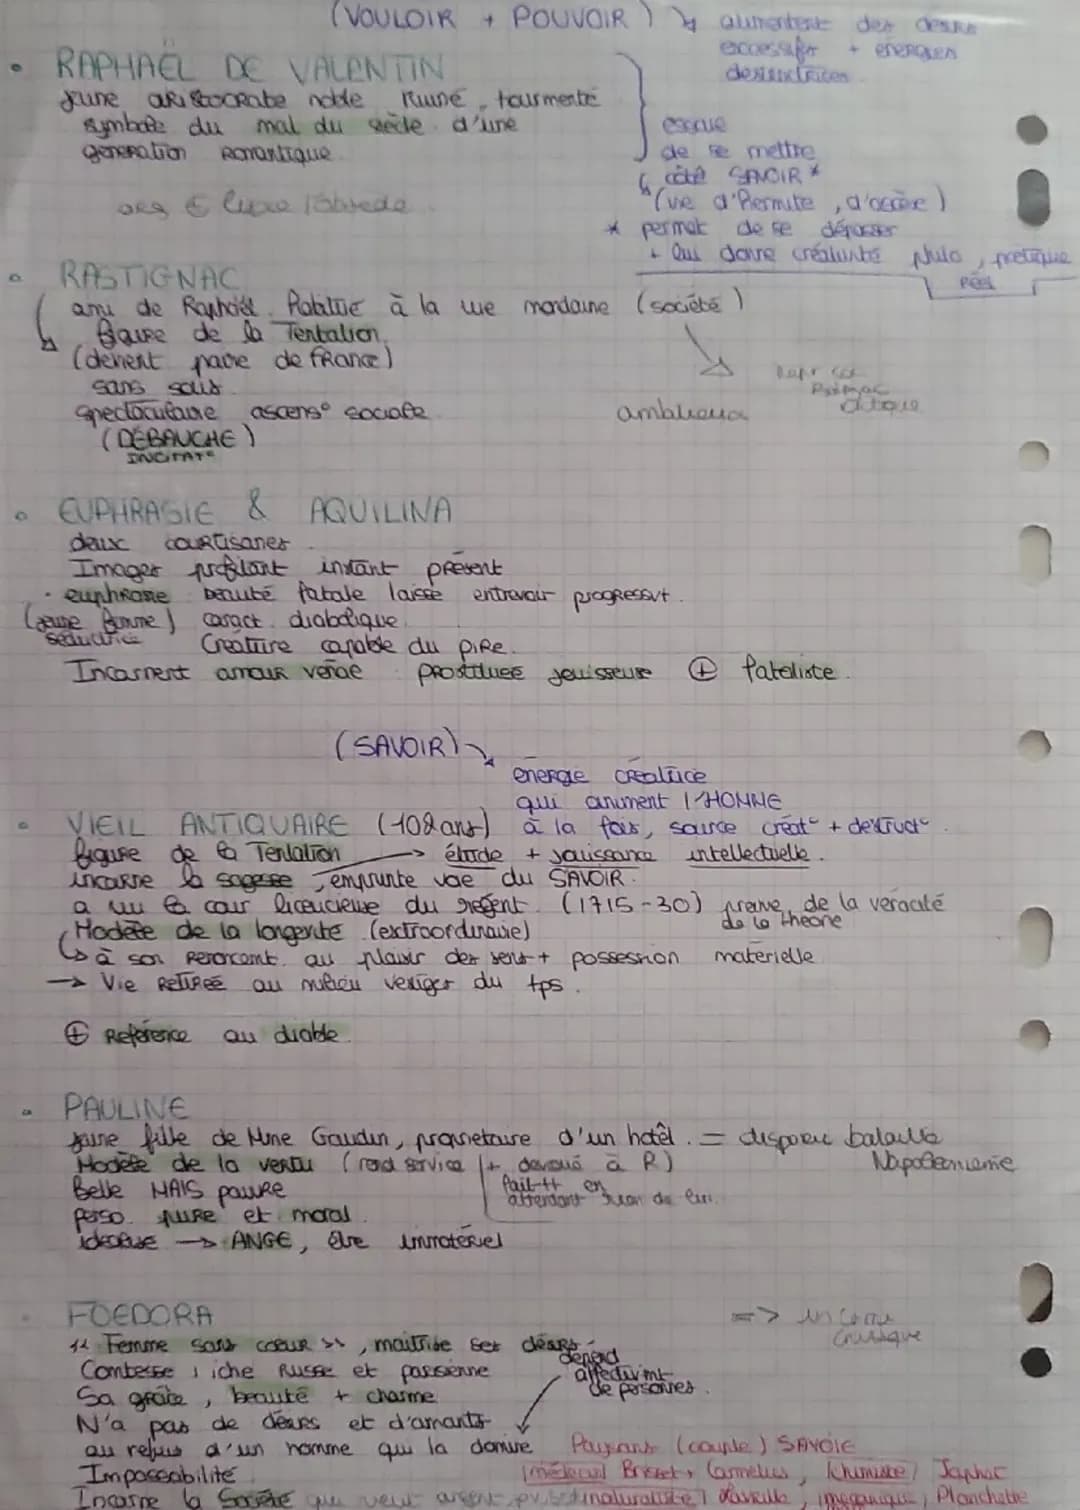 (VOULOIR + POUVOIR)
excessifs + énergies
destructrices
• RAPHAËL DE VALENTIN
jeune aristocrate noble ruiné, tourmenté
symbole du mal du siècle d'une
génération romantique
essaie
de se mettre
côté SAVOIR *
(vie d'hermite, d'ascèse)
* permet de se dépasser
• RASTIGNAC
ami de Raphaël. à la vie mondaine (société)
figure de la Tentation
(devient paire de france)
sans
spectaculaire ascens° sociale
(DÉBAUCHE)
INCITAT°
ambitieux
• EUPHRASIE & AQUILINA
deux courtisanes
Images profitant instant présent
• euphrasie beauté fatale laisse entrevoir progressivt.
(jeune femme) caract. diabolique
séductrice
Créature capable du pire.
Incarnent amour vénal prostituée jouisseuse ⊕ fataliste.
(SAVOIR)
énergie créatrice
qui animent l'HOMME
• VIEIL ANTIQUAIRE (102 ans) à la fois, source créat° + destruct°.
figure de la Tentation → étude + jouissance intellectuelle.
incarne la sagesse, emprunte voie du SAVOIR.
a vu la cour licencieuse du régent (1715-30) preuve de la véracité
de la théorie
Modèle de la longévité (extraordinaire)
↳ à son renoncemt. au plaisir des sens + possession matérielle
→ Vie retirée au milieu vestiges du tps.
⊕ Référence au diable.
• PAULINE
jeune fille de Mme Gaudin, propriétaire d'un hotêl. = disparu bataille
Napoléonienne
Modèle de la vertu (rend service + dévoué à R)
Belle MAIS pauvre
fait tt en
attendant rien de lui.
perso. pure et moral.
idéelle → ANGE, être immatériel
• FOEDORA
« Femme sans coeur », maîtrise ses désirs
Comtesse riche Russe et parisienne
dépend
affectivimt
de personnes.
Sa grâce, beauté + charme
N'a pas de désirs et d'amants
au refus d'un homme qui la domine
Paysans (couple) SAVOIE
Impossabilité
médecin Brisset, Caméristus, Chimiste Japhet
Incarne la Société qui veut argent
naturaliste Lavrille, mécanique, Planchette